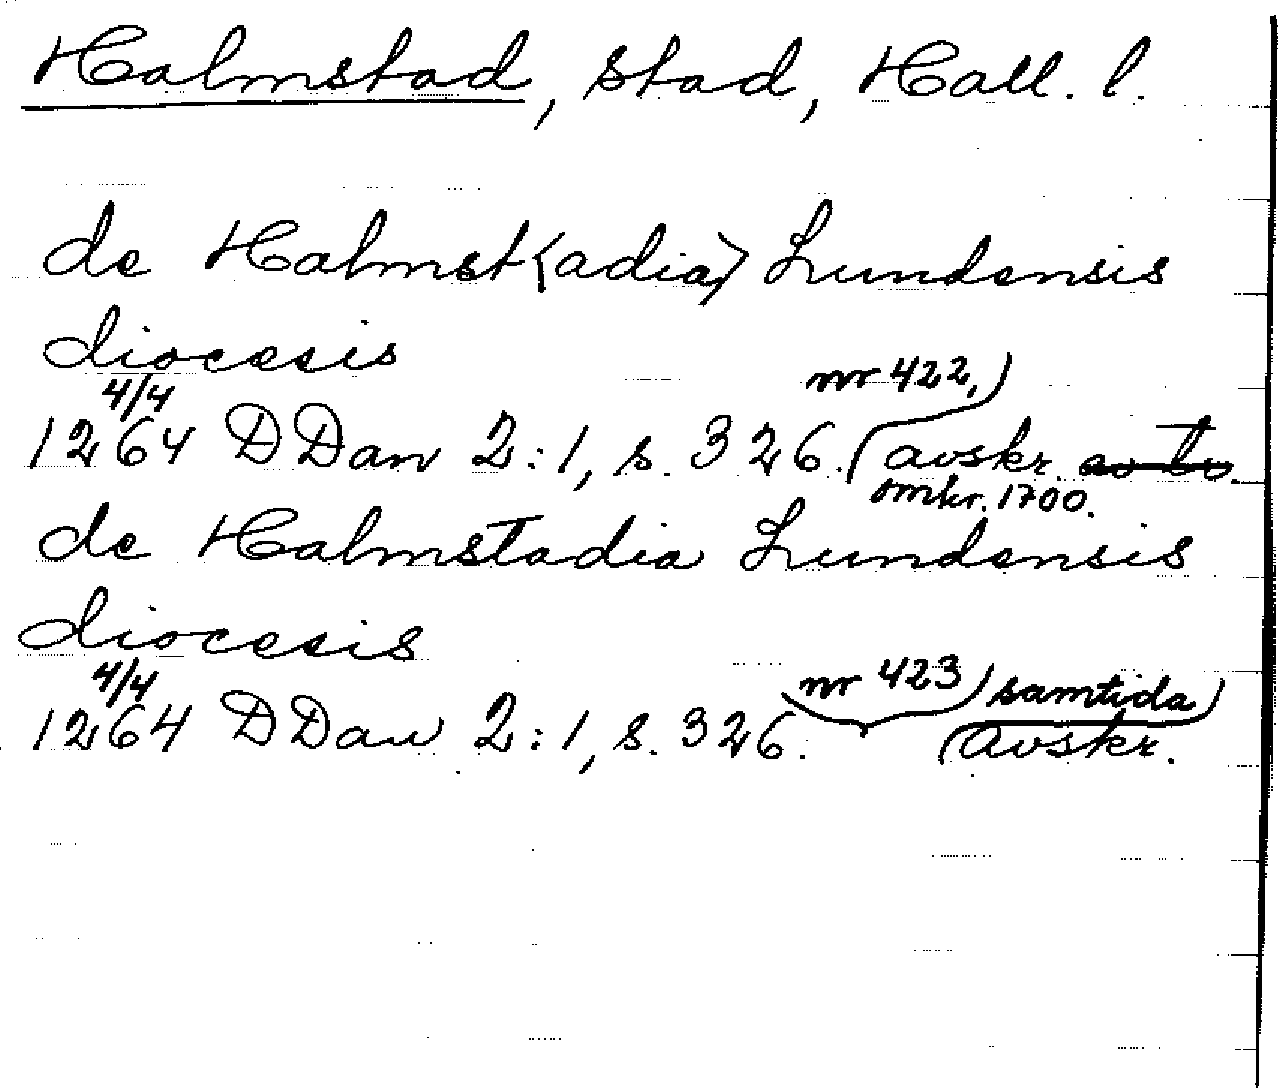 Halmstad, stad, Hall. l.
de Halmst⟨adia⟩ Lundensis
diocesis
4/4 nr 422,
1264 DDan 2:1, s. 326. avskr.
omkr. 1700.
de Halmstadia Lundensis
diocesis
4/4 nr 423 samtida
1264 DDan 2:1, s. 326. avskr.